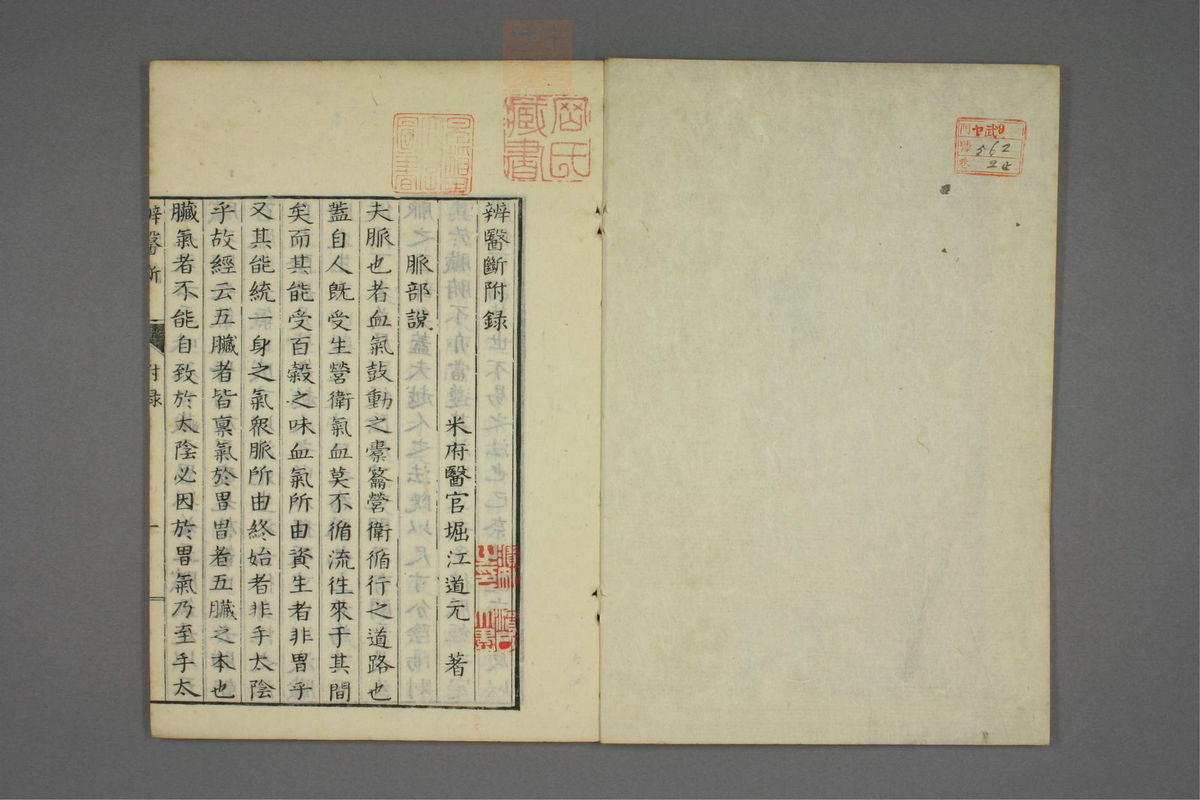 辨醫斷附録
米府醫官堀江道元 著
脈部説
夫脈也者血氣鼓動之橐籥營衛循行之道路也
蓋自人既受生營衛氣血莫不循流徃來于其間
矣而其能受百穀之味血氣所由資生者非胃乎
又其能統一身之氣衆脈所由終始者非手太陰
乎故經云五臟者皆稟氣於胃胃者五臟之本也
臟氣者不能自致於太陰必因於胃氣乃至手太
辨醫斷 附録 一
藏書
562